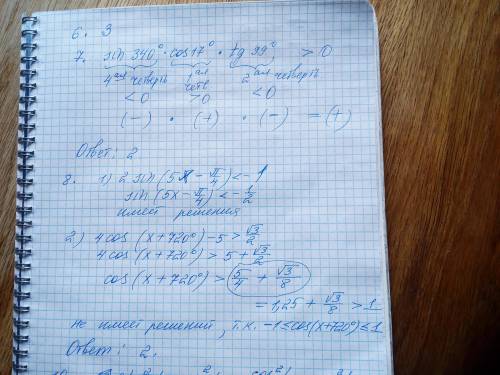 6. 3
7. sin 340° · cos 17° · tg 99° > 0
4ая четверть 1ая четв 2ая четверть
< 0 > 0 < 0
(-) · (+) · (-) = (+)
Ответ: 2
8. 1) 2 sin (5x - π/4) < -1
sin (5x - π/4) < -1/2
имеет решения
2) 4 cos (x + 720°) - 5 > √3/2
4 cos (x + 720°) > 5 + √3/2
cos (x + 720°) > 5/4 + √3/8
= 1,25 + √3/8 > 1
не имеет решений, т.к. -1 ≤ cos(x+720°) ≤ 1
Ответ: 2.